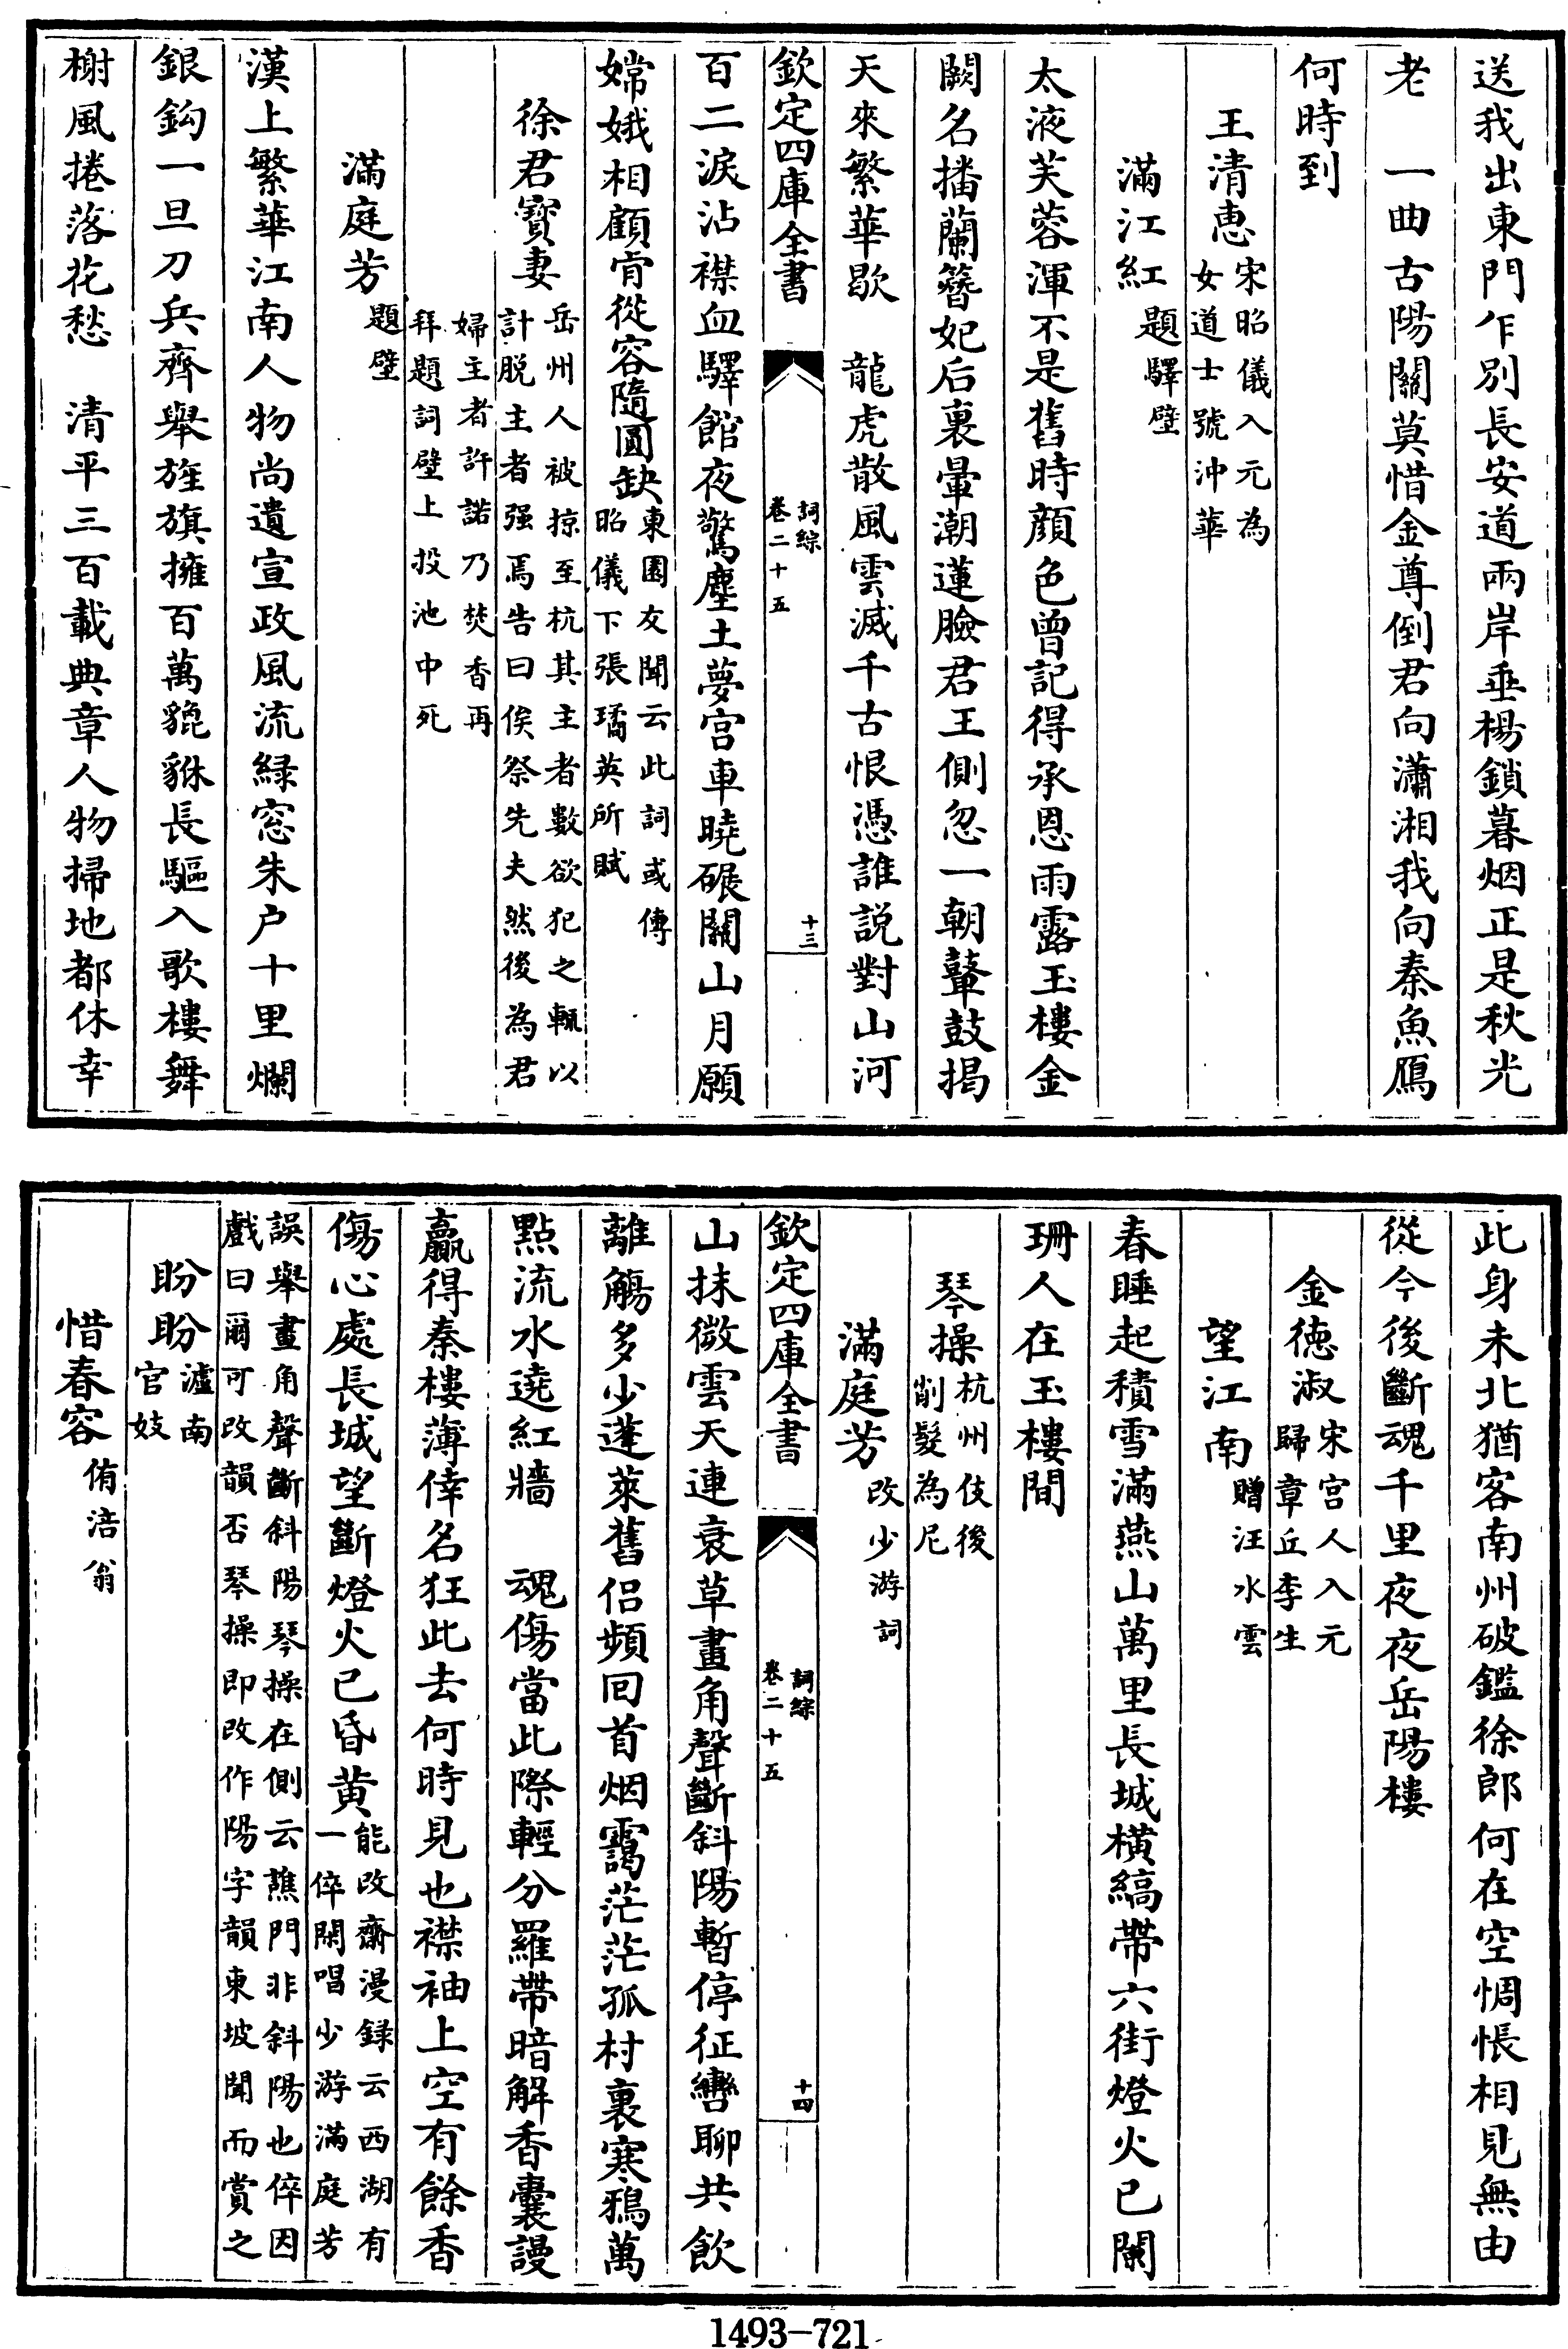 送我出東門乍別長安道兩岸垂楊鎖暮烟正是秋光
老　一曲古陽關莫惜金尊倒君向瀟湘我向秦魚鴈
何時到
王清惠宋昭儀入元為
女道士號沖華
滿江紅題驛壁
太液芙蓉渾不是舊時顔色曾記得承恩雨露玉樓金
闕名播蘭簪妃后裏暈潮蓮臉君王側忽一朝鼙鼓揭
天來繁華歇　龍虎散風雲滅千古恨憑誰説對山河
欽定四庫全書
詞綜
卷二十五
十三
百二淚沾襟血驛館夜驚塵土夢宫車曉碾關山月願
嫦娥相顧肯從容隨圓缺東園友聞云此詞或傳
昭儀下張璚英所賦
徐君寶妻岳州人被掠至杭其主者數欲犯之輒以
計脱主者强焉告曰俟祭先夫然後為君
婦主者許諾乃焚香再
拜題詞壁上投池中死
滿庭芳題壁
漢上繁華江南人物尚遺宣政風流緑窓朱户十里爛
銀鈎一旦刀兵齊舉旌旗擁百萬貔貅長驅入歌樓舞
榭風捲落花愁　清平三百載典章人物掃地都休幸
此身未北猶客南州破鑑徐郎何在空惆悵相見無由
從今後斷魂千里夜夜岳陽樓
金德淑宋宫人入元
歸章丘李生
望江南贈汪水雲
春睡起積雪滿燕山萬里長城横縞帶六街燈火已闌
珊人在玉樓間
琴操杭州伎後
削髮為尼
滿庭芳改少游詞
欽定四庫全書
詞綜
卷二十五
十四
山抹微雲天連衰草畫角聲斷斜陽暫停征轡聊共飲
離觴多少蓬萊舊侣頻回首烟靄茫茫孤村裏寒鴉萬
點流水遶紅牆　魂傷當此際輕分羅帶暗解香囊謾
贏得秦樓薄倖名狂此去何時見也襟袖上空有餘香
傷心處長城望斷燈火已昏黄能改齋漫録云西湖有
一倅閑唱少游滿庭芳
誤舉畫角聲斷斜陽琴操在側云譙門非斜陽也倅因
戲曰爾可改韻否琴操即改作陽字韻東坡聞而賞之
盼盼瀘南
官妓
惜春容侑涪翁
1493-721